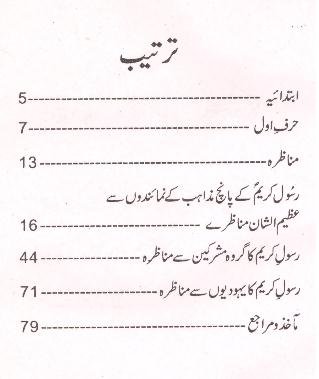 ترتیب
ابتدائیہ ---------------------------------------- 5
حرفِ اول ---------------------------------------- 7
مناظرہ ---------------------------------------- 13
رسُول کریمؐ کے پانچ مذاہب کے نمائندوں سے
عظیم الشان مناظرے ------------------------- 16
رسولِ کریمؐ کا گروہ مشرکین سے مناظرہ ---------- 44
رسولِ کریمؐ کا یہودیوں سے مناظرہ -------------- 71
مآخذ و مراجع -------------------------------- 79